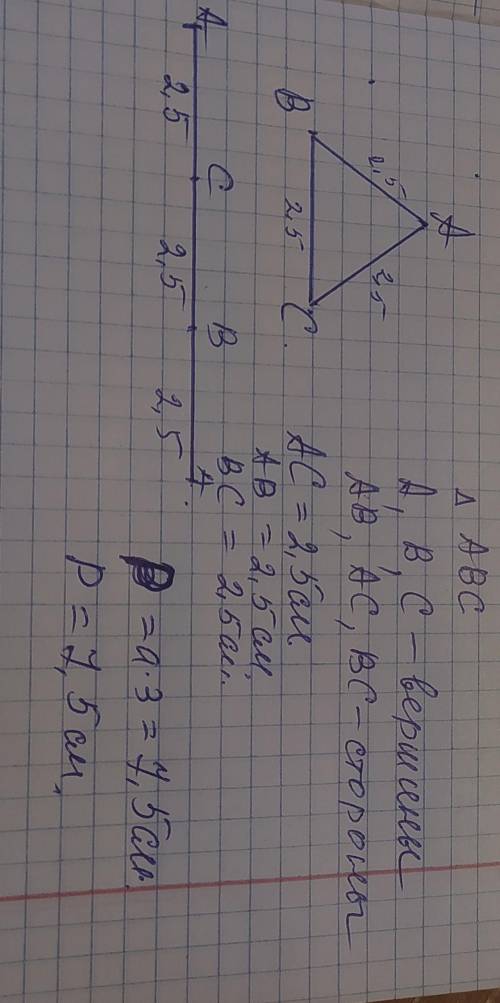 A
2,5
2,5
B
2,5
C.
A
C
B
A.
2,5
2,5
2,5
Δ ABC
A, B, C – вершины
AB, AC, BC – стороны
AC = 2,5 см.
AB = 2,5 см,
BC = 2,5 см.
P = a·3 = 7,5 см.
P = 7,5 см,